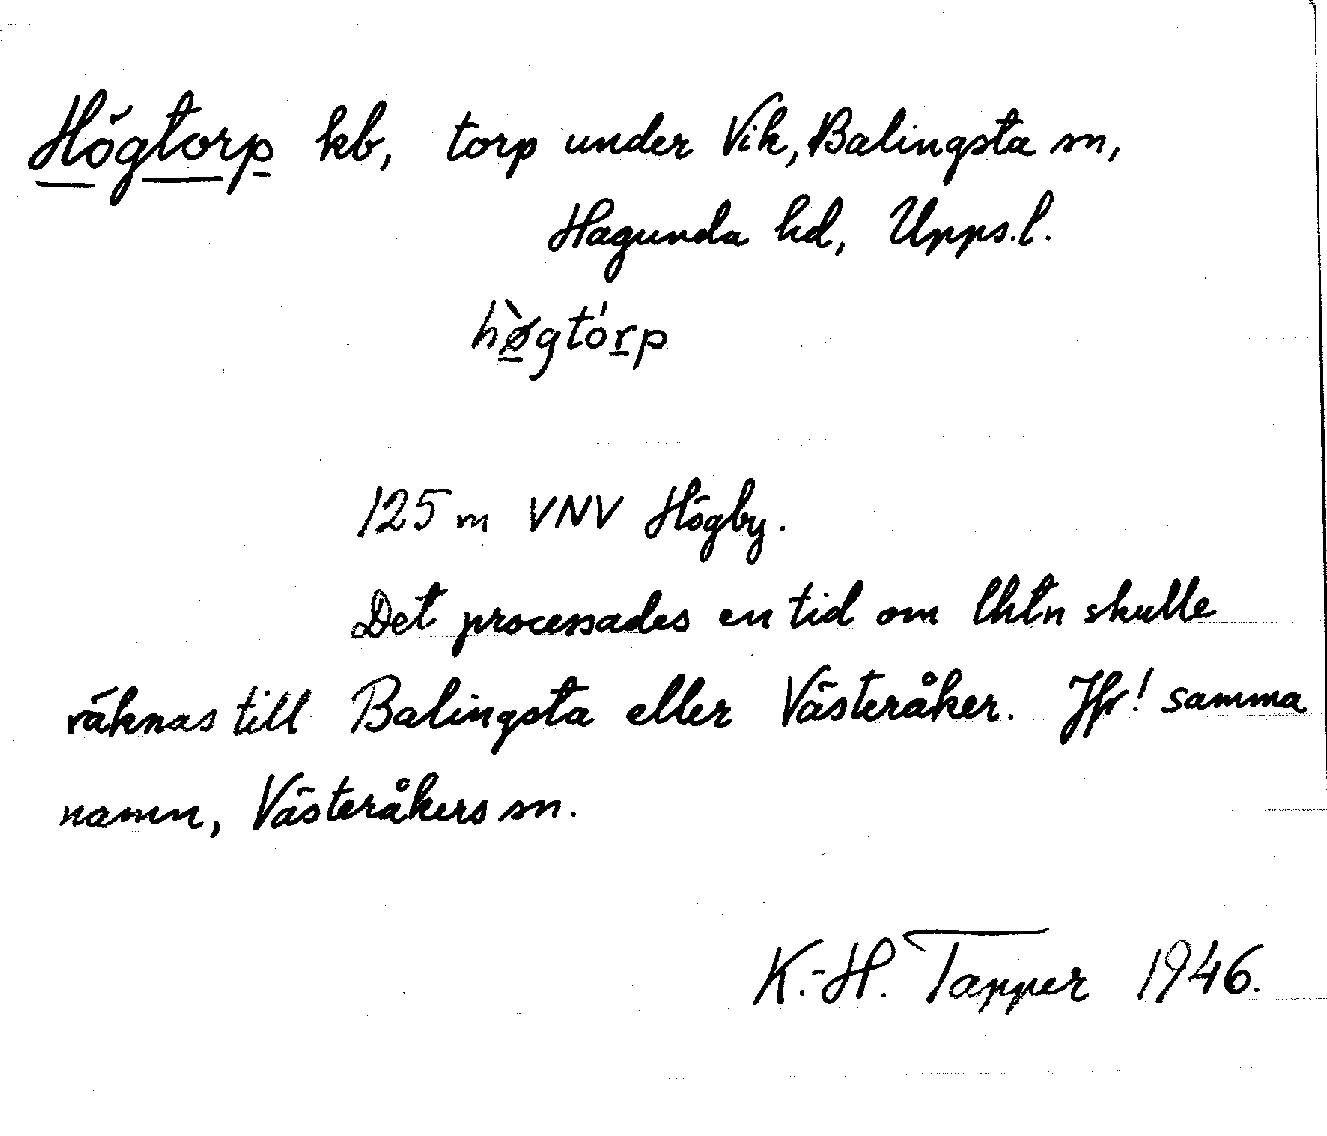 Högtorp kb, torp under Vik, Balingsta sn,
Hagunda hd, Upps.l.
hø̀gtórp
125 m VNV Högby.
Det processades en tid om lhtn skulle
räknas till Balingsta eller Västeråker. Jfr! samma
namn, Västeråkers sn.
K.-H. Tapper 1946.